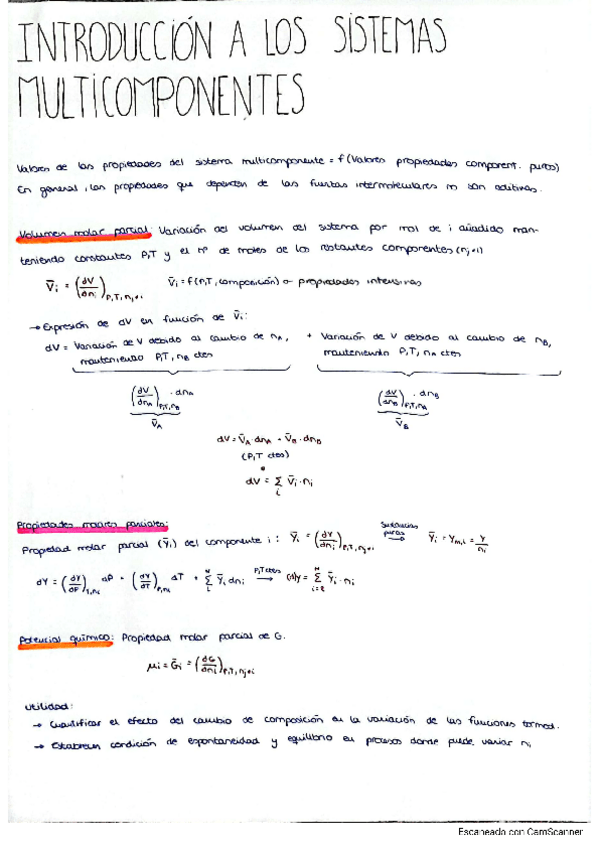 INTRODUCCIÓN A LOS SISTEMAS
MULTICOMPONENTES
Valores de las propiedades del sistema multicomponente = f (Valores propiedades component. puros)
En general, las propiedades que dependen de las fuerzas intermoleculares no son aditivas.
Volumen molar parcial: Variación del volumen del sistema por mol de i añadido man-
teniendo constantes P,T y el nº de moles de los restantes componentes (nj≠i)
V̄i = (dV/dni)P,T,nj≠i V̄i = f(P,T, composición) propiedades intensivas
→ Expresión de dV en función de V̄i:
dV = Variación de V debido al cambio de nA, + Variación de V debido al cambio de nB,
manteniendo P,T, nB ctes manteniendo P,T, nA ctes
(dV/dnA)P,T,nB · dnA (dV/dnB)P,T,nA · dnB
V̄A V̄B
dV = V̄A · dnA + V̄B · dnB
(P,T ctes)
dV = Σi V̄i · ni
Propiedades molares parciales:
Propiedad molar parcial (Ȳi) del componente i: Ȳi = (dY/dni)P,T,nj≠i Sustancias puras → Ȳi = Ym,i = Y/ni
dY = (dY/dP)T,ni dP + (dY/dT)P,ni dT + Σ Ȳi dni P,T ctes → (d)Y = Σ Ȳi · ni
Potencial químico: Propiedad molar parcial de G.
μi = Ḡi = (dG/dni)P,T,nj≠i
Utilidad:
→ Cuantificar el efecto del cambio de composición en la variación de las funciones termod.
→ Establecen condición de espontaneidad y equilibrio en procesos donde puede variar ni
Escaneado con CamScanner